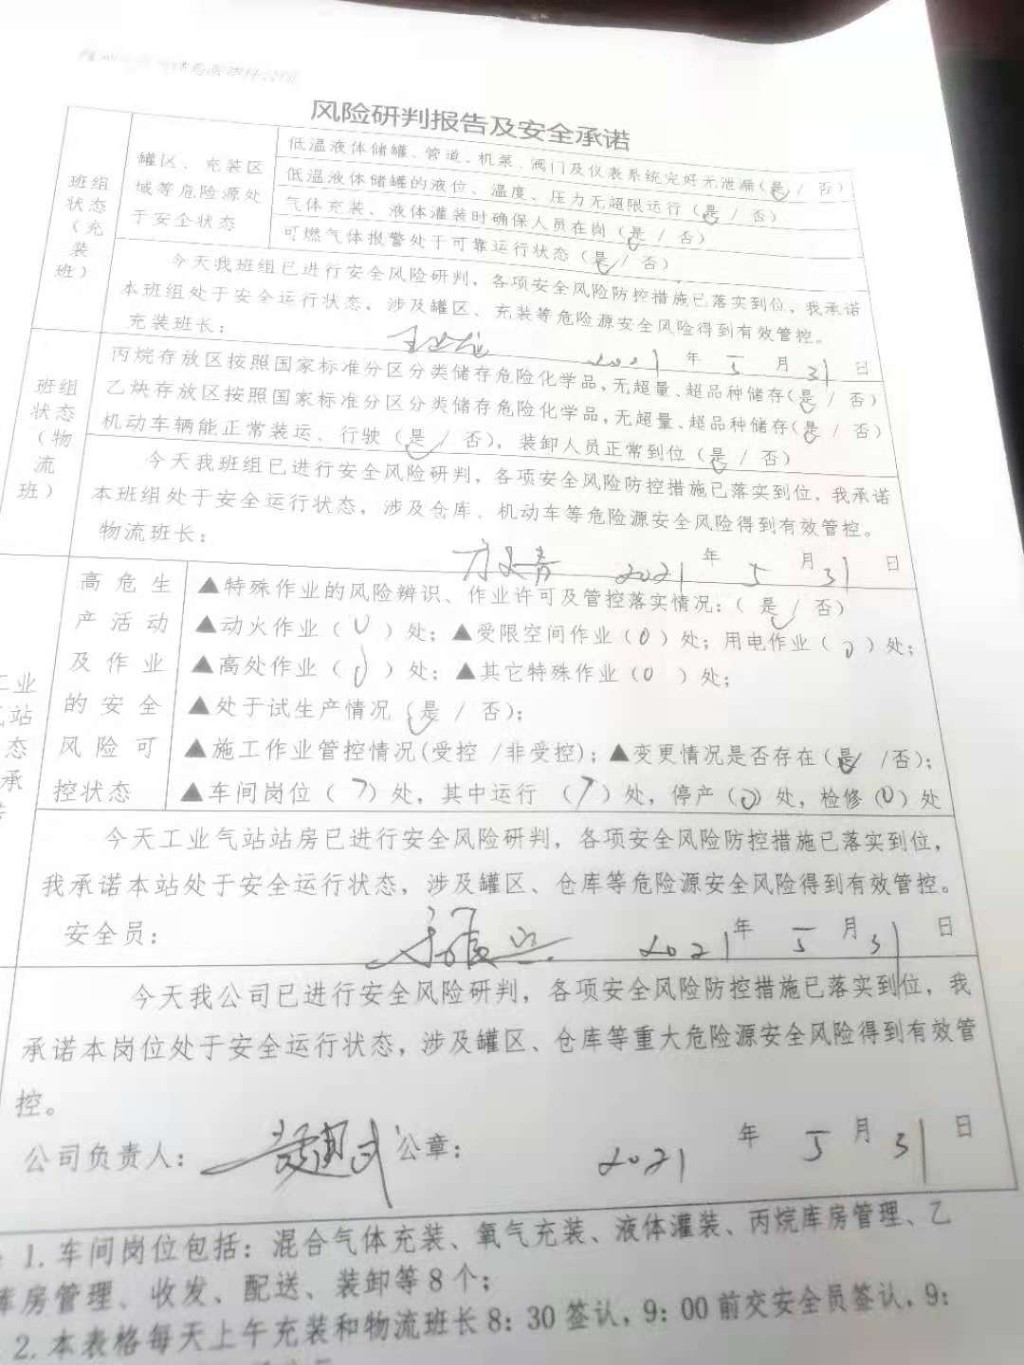 风险研判报告及安全承诺
班组状态（充装班）
罐区、充装区域等危险源处于安全状态
低温液体储罐、管道、机泵、阀门及仪表系统完好无泄漏（是 / 否）
低温液体储罐的液位、温度、压力无超限运行（是 / 否）
气体充装、液体灌装时确保人员在岗（是 / 否）
可燃气体报警处于可靠运行状态（是 / 否）
今天我班组已进行安全风险研判，各项安全风险防控措施已落实到位，我承诺
本班组处于安全运行状态，涉及罐区、充装等危险源安全风险得到有效管控。
充装班长： 2021 年 5 月 31 日
班组状态（物流班）
丙烷存放区按照国家标准分区分类储存危险化学品，无超量、超品种储存（是 / 否）
乙炔存放区按照国家标准分区分类储存危险化学品，无超量、超品种储存（是 / 否）
机动车辆能正常装运、行驶（是 / 否），装卸人员正常到位（是 / 否）
今天我班组已进行安全风险研判，各项安全风险防控措施已落实到位，我承诺
本班组处于安全运行状态，涉及仓库、机动车等危险源安全风险得到有效管控。
物流班长： 2021 年 5 月 31 日
工业
站
态
承
高危生产活动及作业的安全风险可控状态
▲特殊作业的风险辨识、作业许可及管控落实情况：（ 是 / 否）
▲动火作业（ 0 ）处；▲受限空间作业（0 ）处；用电作业（ 0 ）处；
▲高处作业（ 0 ）处；▲其它特殊作业（0 ）处；
▲处于试生产情况（是 / 否）；
▲施工作业管控情况(受控 /非受控)；▲变更情况是否存在（是 /否）；
▲车间岗位（ 7 ）处，其中运行 （ 7 ）处，停产（0）处，检修（0）处
今天工业气站站房已进行安全风险研判，各项安全风险防控措施已落实到位，
我承诺本站处于安全运行状态，涉及罐区、仓库等危险源安全风险得到有效管控。
安全员： 2021 年 5 月 31 日
今天我公司已进行安全风险研判，各项安全风险防控措施已落实到位，我
承诺本岗位处于安全运行状态，涉及罐区、仓库等重大危险源安全风险得到有效管
控。
公司负责人： 公章： 2021 年 5 月 31 日
1.车间岗位包括：混合气体充装、氧气充装、液体灌装、丙烷库房管理、乙
库房管理、收发、配送、装卸等8个；
2.本表格每天上午充装和物流班长8：30签认，9：00前交安全员签认，9：